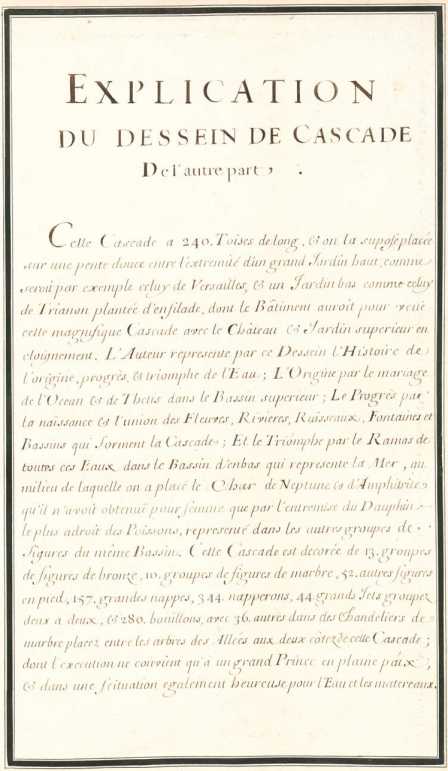 EXPLICATION
DU DESSEIN DE CASCADE
De l'autre part,.
Cette Cascade a 240. Toises de long, & on la supose placée
sur une pente douce entre l'extremité d'un grand Jardin haut, comme
seroit par exemple celuy de Versailles, & un Jardin bas comme celuy
de Trianon plantée d'enfilade, dont le Bâtiment auroit pour veüe
cette magnifique Cascade avec le Château & Jardin superieur en
eloignement. L'Auteur represente par ce Dessein l'Histoire de
l'origine, progrès, & triomphe de l'Eau; L'Origine par le mariage
de l'Ocean & de Thetis dans le Bassin superieur; Le Progrès par
la naissance & l'union des Fleuves, Rivieres, Ruisseaux, Fontaines et
Bassins qui forment la Cascade; Et le Triomphe par le Ramas de
toutes ces Eaux dans le Bassin d'enbas qui represente la Mer, au
milieu de laquelle on a placé le Char de Neptune & d'Amphitrite
qu'il n'avoit obtenuë pour femme que par l'entremise du Dauphin
le plus adroit des Poissons, representé dans les autres groupes de
figures du même Bassin. Cette Cascade est decorée de 13. groupes
de figures de bronze, 10. groupes de figures de marbre, 52. autres figures
en pied, 157. grandes nappes, 344. napperons, 44 grands Jets groupez
deux a deux, & 280. bouillons, avec 36. autres dans des Chandeliers de
marbre placez entre les arbres des Allées aux deux côtez de cette Cascade;
dont l'execution ne convient qu'a un grand Prince en plaine paix,
& dans une scituation egalement heureuse pour l'Eau et les matereaux.